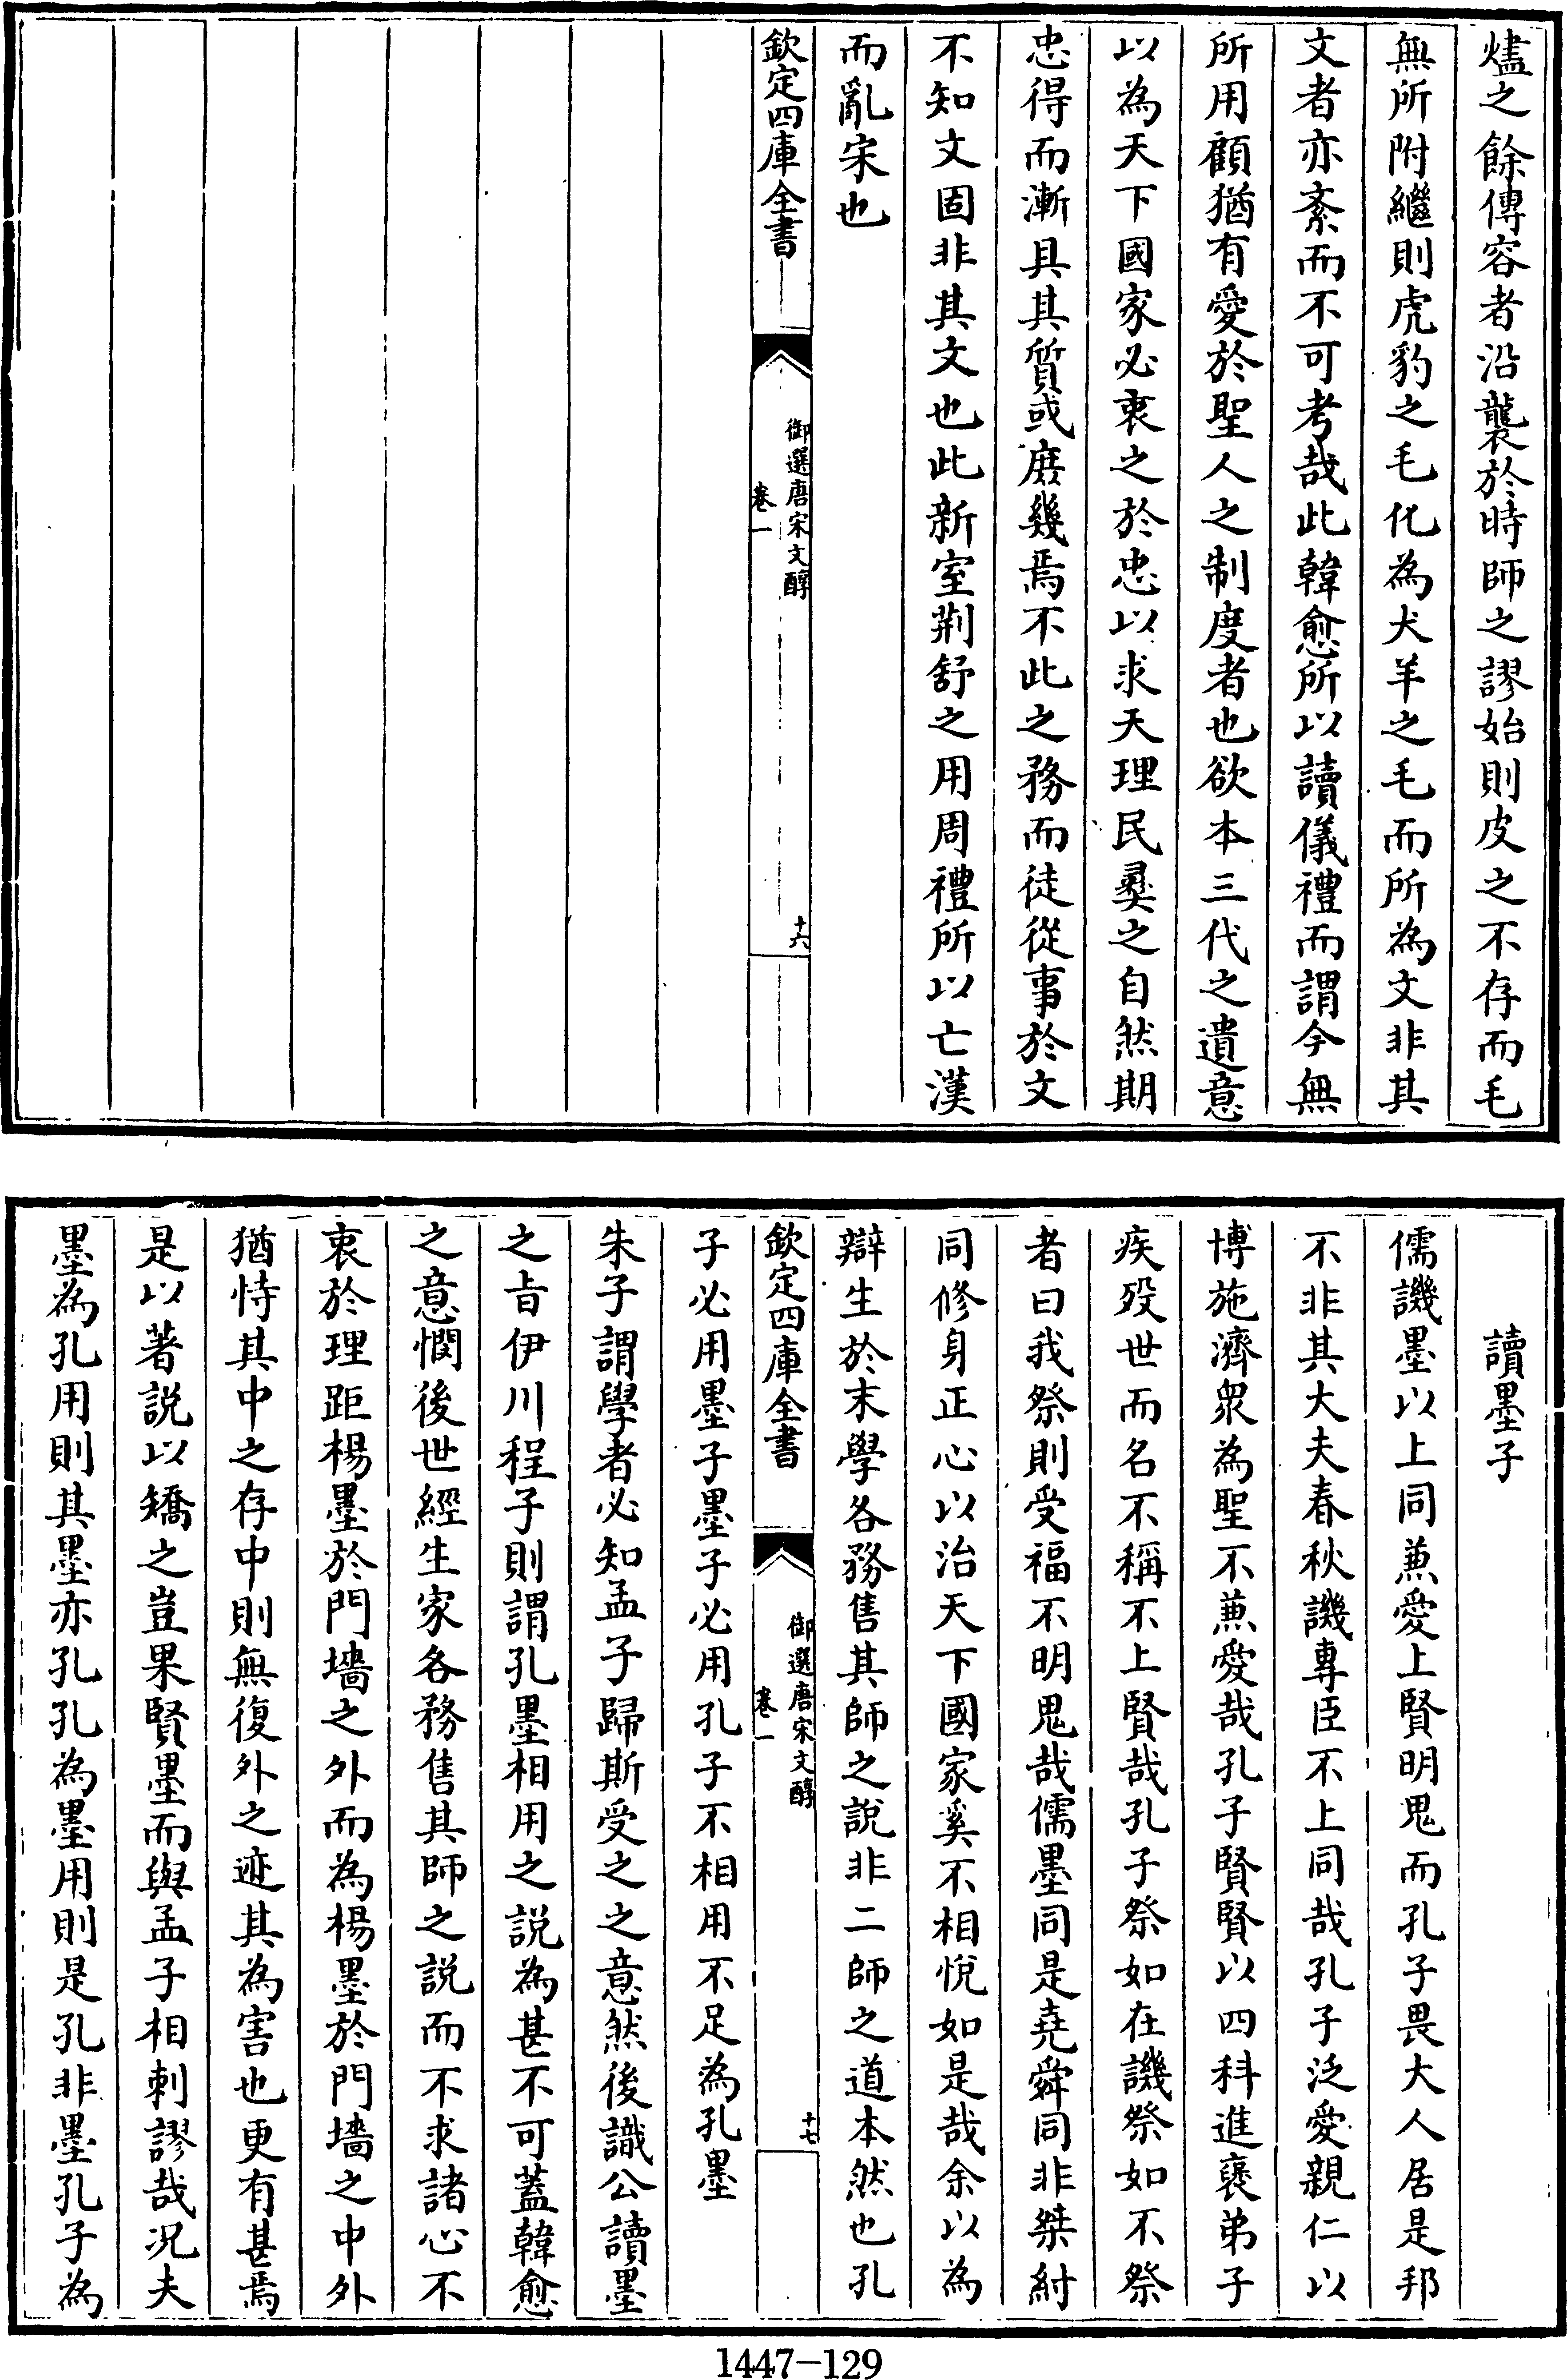 燼之餘傳容者沿襲於時師之謬始則皮之不存而毛
無所附繼則虎豹之毛化為犬羊之毛而所為文非其
文者亦紊而不可考哉此韓愈所以讀儀禮而謂今無
所用顧猶有愛於聖人之制度者也欲本三代之遺意
以為天下國家必衷之於忠以求天理民彞之自然期
忠得而漸具其質或庶幾焉不此之務而徒從事於文
不知文固非其文也此新室荆舒之用周禮所以亡漢
而亂宋也
欽定四庫全書
御選唐宋文醇
卷一
十六
讀墨子
儒譏墨以上同兼愛上賢明鬼而孔子畏大人居是邦
不非其大夫春秋譏專臣不上同哉孔子泛愛親仁以
博施濟衆為聖不兼愛哉孔子賢賢以四科進襃弟子
疾歿世而名不稱不上賢哉孔子祭如在譏祭如不祭
者曰我祭則受福不明鬼哉儒墨同是堯舜同非桀紂
同修身正心以治天下國家奚不相悅如是哉余以為
辯生於末學各務售其師之說非二師之道本然也孔
欽定四庫全書
御選唐宋文醇
卷一
十七
子必用墨子墨子必用孔子不相用不足為孔墨
朱子謂學者必知孟子歸斯受之之意然後識公讀墨
之㫖伊川程子則謂孔墨相用之説為甚不可蓋韓愈
之意憫後世經生家各務售其師之説而不求諸心不
衷於理距楊墨於門墻之外而為楊墨於門墻之中外
猶恃其中之存中則無復外之迹其為害也更有甚焉
是以著説以矯之豈果賢墨而與孟子相刺謬哉况夫
墨為孔用則其墨亦孔孔為墨用則是孔非墨孔子為
1447-129